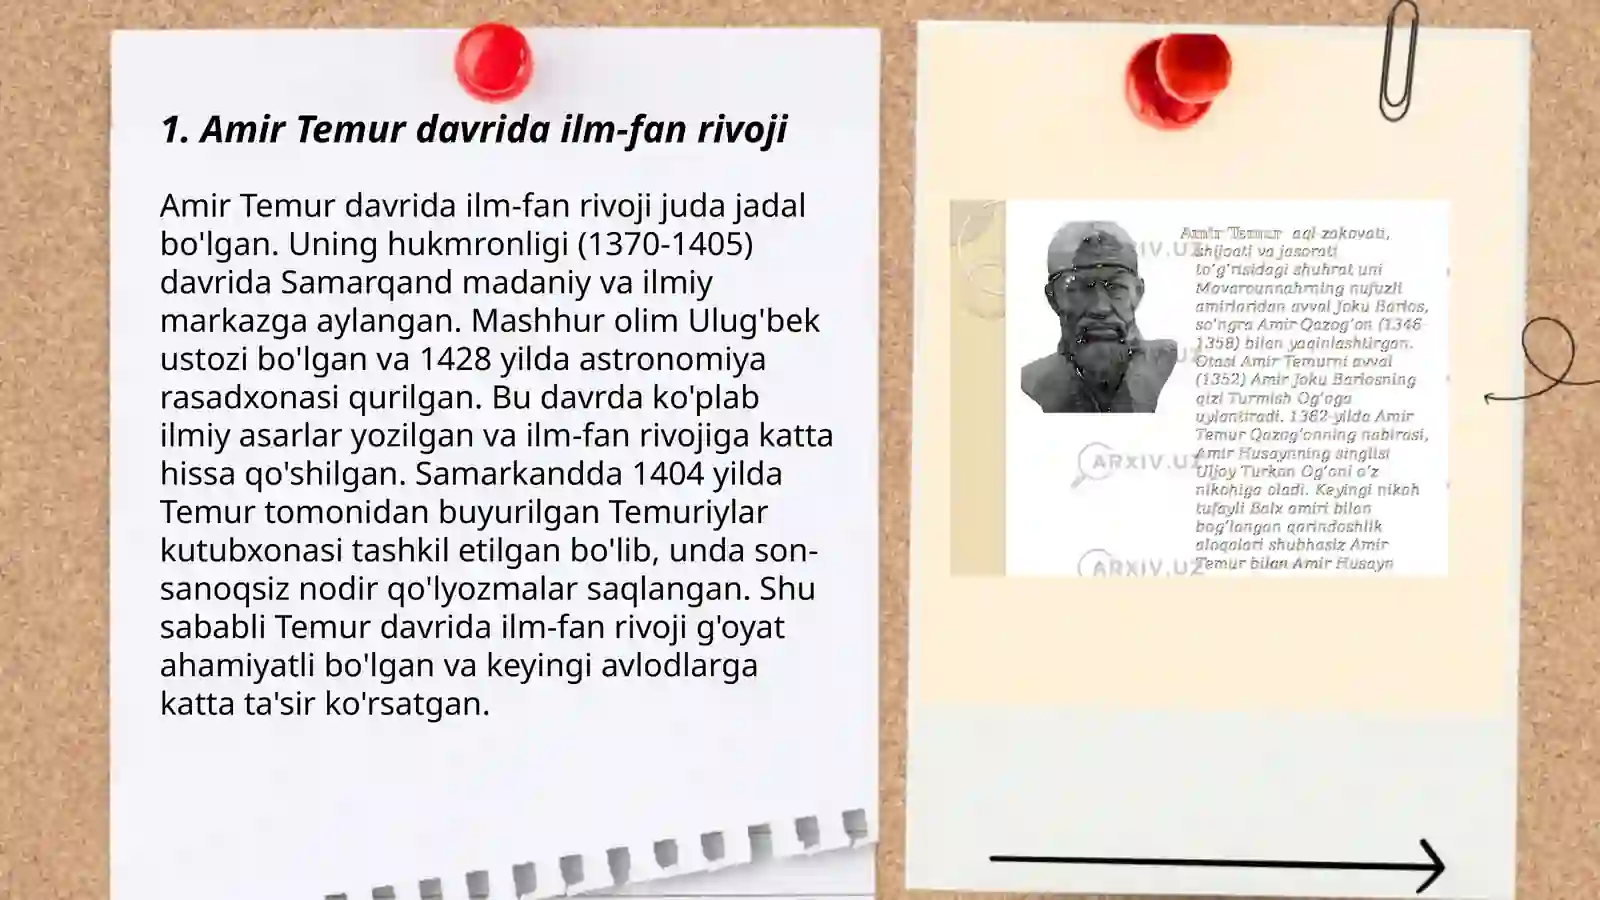 1. Amir Temur davrida ilm-fan rivoji
Amir Temur davrida ilm-fan rivoji juda jadal
bo'lgan. Uning hukmronligi (1370-1405)
davrida Samarqand madaniy va ilmiy
markazga aylangan. Mashhur olim Ulug'bek
ustozi bo'lgan va 1428 yilda astronomiya
rasadxonasi qurilgan. Bu davrda ko'plab
ilmiy asarlar yozilgan va ilm-fan rivojiga katta
hissa qo'shilgan. Samarkandda 1404 yilda
Temur tomonidan buyurilgan Temuriylar
kutubxonasi tashkil etilgan bo'lib, unda son-
sanoqsiz nodir qo'lyozmalar saqlangan. Shu
sababli Temur davrida ilm-fan rivoji g'oyat
ahamiyatli bo'lgan va keyingi avlodlarga
katta ta'sir ko'rsatgan.
Amir Temur aql-zakovati,
shijoati va jasorati
to'g'risidagi shuhrat uni
Movarounnahrning nufuzli
amirlaridan avval Joku Barlos,
so'ngra Amir Qazag'on (1346-
1358) bilan yaqinlashtirgan.
Otasi Amir Temurni avval
(1352) Amir Joku Barlosning
qizi Turmish Og'aga
uylantiradi. 1362-yilda Amir
Temur Qazag'onning nabirasi,
Amir Husaynning singlisi
Uljoy Turkon Og'oni o'z
nikohiga oladi. Keyingi nikoh
tufayli Balx amiri bilan
bog'langan qarindoshlik
aloqalari shubhasiz Amir
Temur bilan Amir Husayn
ARXIV.UZ
ARXIV.UZ